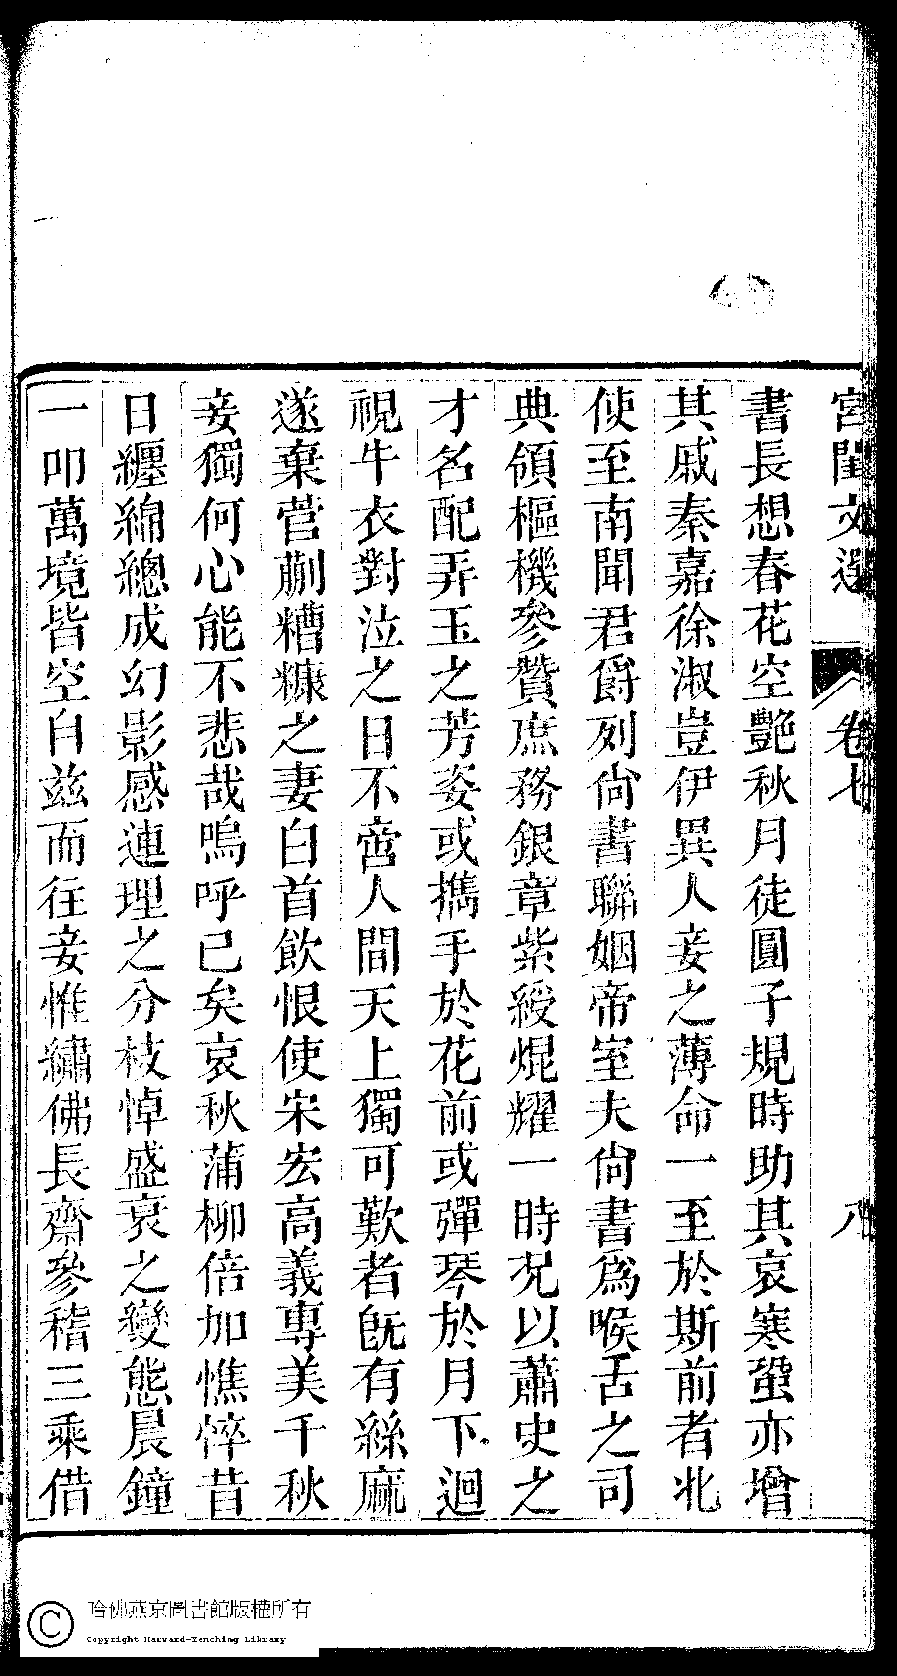 宮閨文選 卷七 八
書長想春花空艷秋月徒圓子規時助其哀寒蛩亦增
其戚秦嘉徐淑豈伊異人妾之薄命一至於斯前者北
使至南聞君爵列尙書聯姻帝室夫尙書爲喉舌之司
典領樞機參贊庶務銀章紫綬焜耀一時况以蕭史之
才名配弄玉之芳姿或擕手於花前或彈琴於月下迴
視牛衣對泣之日不啻人間天上獨可歎者旣有絲麻
遂棄菅蒯糟糠之妻白首飲恨使宋宏高義專美千秋
妾獨何心能不悲哉嗚呼已矣哀秋蒲柳倍加憔悴昔
日纒綿總成幻影感連理之分枝悼盛衰之變態晨鐘
一叩萬境皆空自兹而往妾惟繡佛長齋參稽三乘借
哈佛燕京圖書館版權所有
Copyright Harvard-Yenching Library